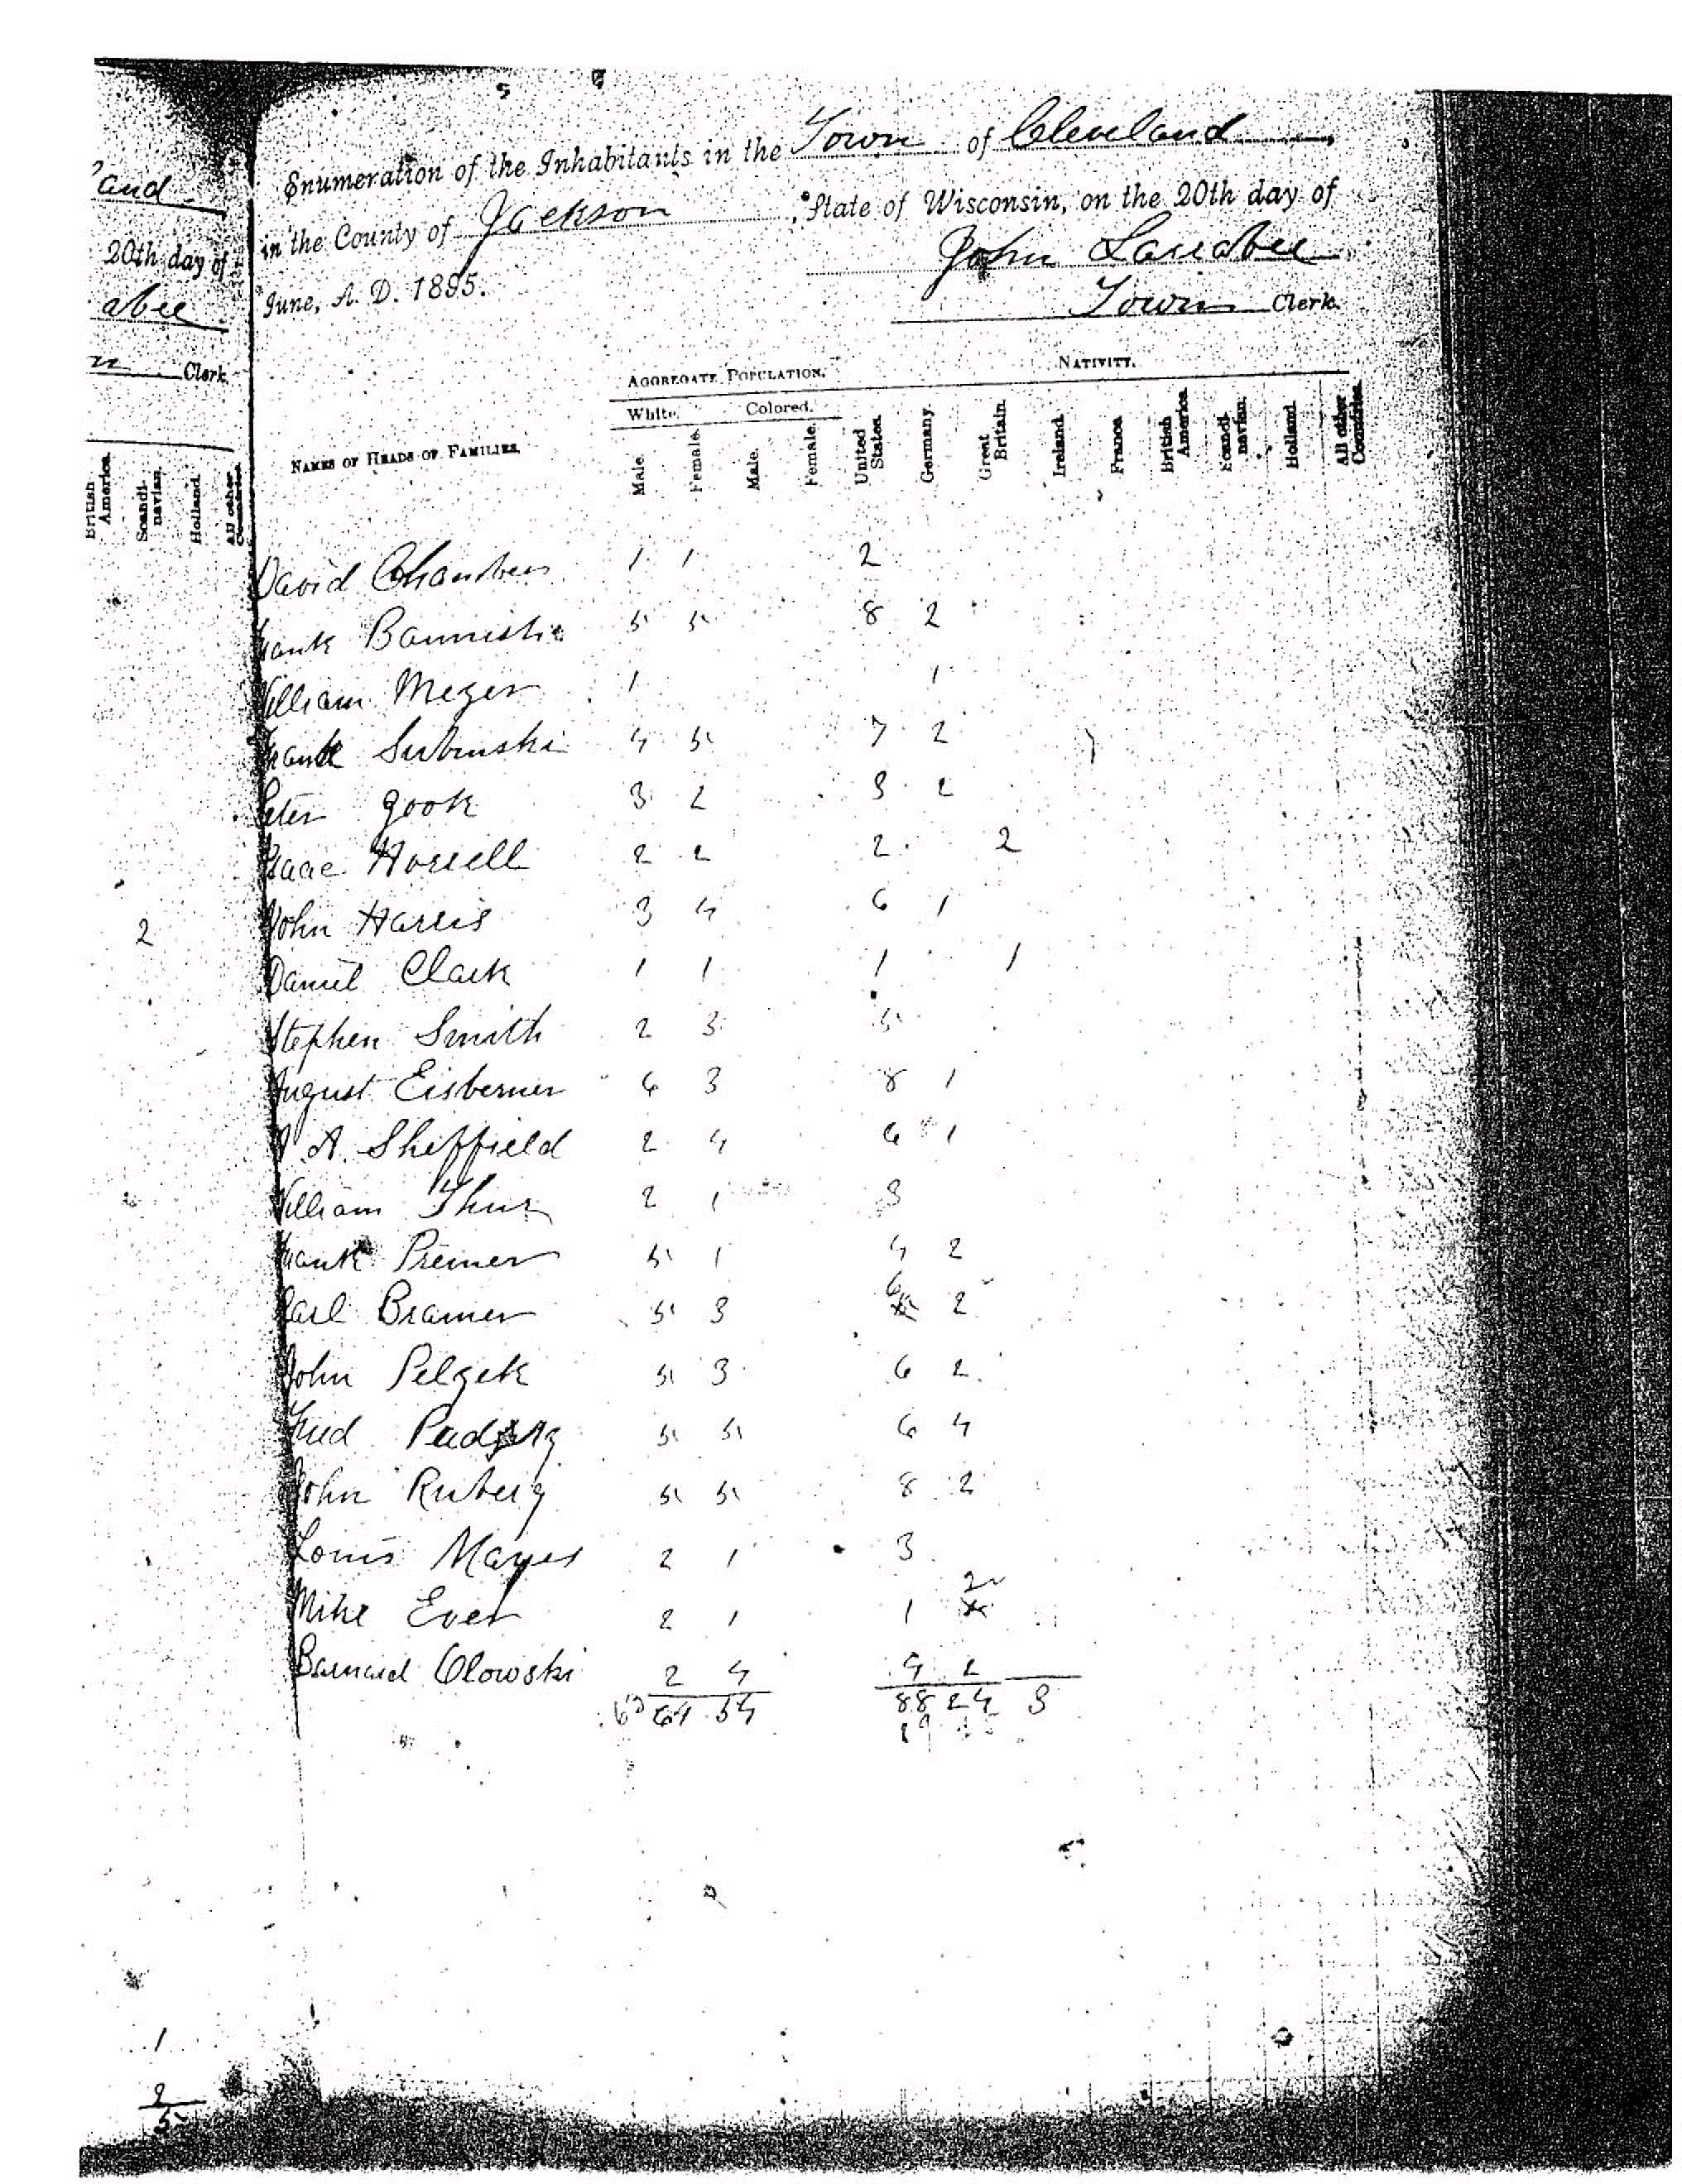 Enumeration of the Inhabitants in the Town of Cleveland,
in the County of Jackson, State of Wisconsin, on the 20th day of
June, A. D. 1895. John Larabee
Town Clerk.
and
20th day of
abee
n Clerk
AGGREGATE POPULATION. NATIVITY.
White. Colored.
NAMES OF HEADS OF FAMILIES. Male. Female. Male. Female. United States. Germany. Great Britain. Ireland. France. British America. Scandinavian. Holland. All other Countries.
British America. Scandinavian. Holland. All other
David Chambers 1 1 2
Frank Bannister 5 5 8 2
William Mezer 1 1
Frank Subinski 4 5 7 2
Peter Gook 3 2 3 2
Isaac Horrell 2 2 2 2
John Harris 3 4 6 1
2
Daniel Clark 1 1 1 1
Stephen Smith 2 3 5
August Eisberner 6 3 8 1
A. Sheffield 2 4 6 1
William Thur 2 1 3
Frank Premer 5 1 4 2
Carl Bramer 5 3 6 2
John Pelzek 5 3 6 2
Fred 5 5 6 4
John Ruberg 5 5 8 2
Louis Mayer 2 1 3
Mike Ever 2 1 1 2
Barnard Olowski 2 4 4 2
54 88 24 3
1
2
5